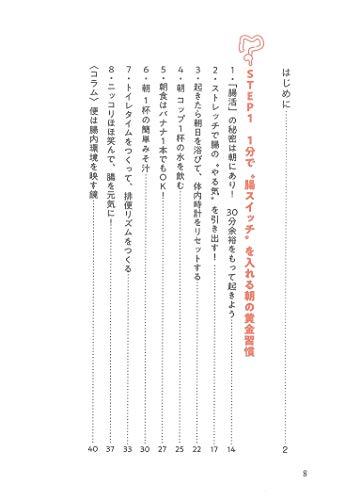 はじめに 2
STEP1 1分で〝腸スイッチ〟を入れる朝の黄金習慣
1・「腸活」の秘密は朝にあり! 30分余裕をもって起きよう 14
2・ストレッチで腸の〝やる気〟を引き出す! 17
3・起きたら朝日を浴びて、体内時計をリセットする 22
4・朝 コップ1杯の水を飲む 25
5・朝食はバナナ1本でもOK! 27
6・朝 1杯の簡単みそ汁 30
7・トイレタイムをつくって、排便リズムをつくる 33
8・ニッコリほほ笑んで、腸を元気に! 37
〈コラム〉便は腸内環境を映す鏡 40
8